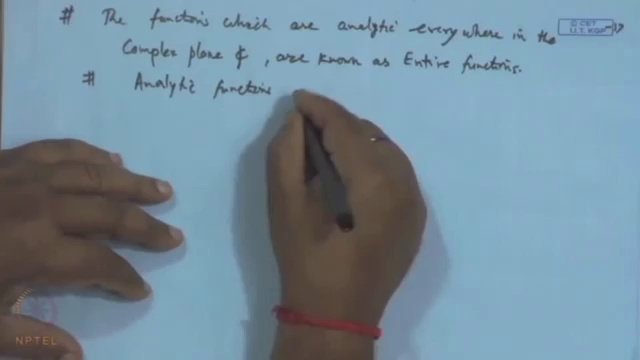 # The functions which are analytic everywhere in the
Complex plane ₵, are known as Entire functions.
# Analytic functions
© CET
I.I.T. KGP
NPTEL